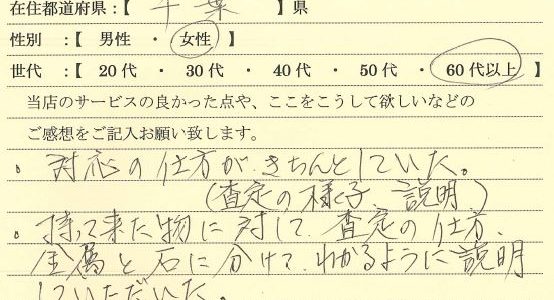 在住都道府県：【 千葉 】県
性別 ：【 男性 ・ 女性 】
世代 ：【 20代 ・ 30代 ・ 40代 ・ 50代 ・ 60代以上 】
当店のサービスの良かった点や、ここをこうして欲しいなどの
ご感想をご記入お願い致します。
。対応の仕方がきちんとしていた。
(査定の様子、説明)
。持って来た物に対して、査定の仕方、
金属と石に分けて、わかるように説明
していただいた。